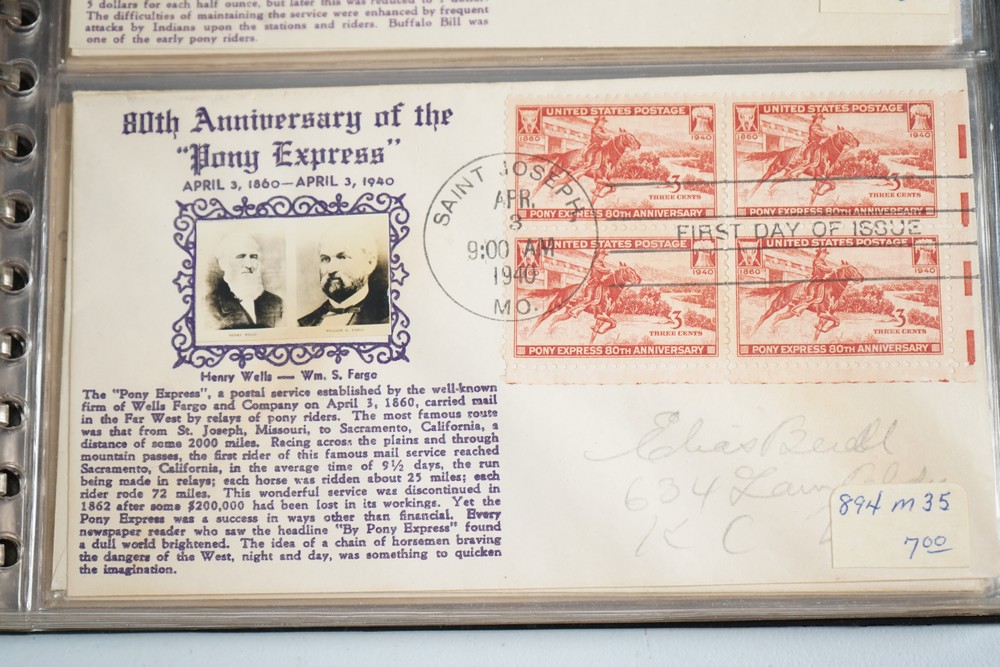 5 dollars for each half ounce, but later this was reduced to 1 dollar.
The difficulties of maintaining the service were enhanced by frequent
attacks by Indians upon the stations and riders. Buffalo Bill was
one of the early pony riders.
80th Anniversary of the
"Pony Express"
APRIL 3, 1860—APRIL 3, 1940
HENRY WELLS
WILLIAM G. FARGO
Henry Wells — Wm. S. Fargo
The "Pony Express", a postal service established by the well-known
firm of Wells Fargo and Company on April 3, 1860, carried mail
in the Far West by relays of pony riders. The most famous route
was that from St. Joseph, Missouri, to Sacramento, California, a
distance of some 2000 miles. Racing across the plains and through
mountain passes, the first rider of this famous mail service reached
Sacramento, California, in the average time of 9½ days, the run
being made in relays; each horse was ridden about 25 miles; each
rider rode 72 miles. This wonderful service was discontinued in
1862 after some $200,000 had been lost in its workings. Yet the
Pony Express was a success in ways other than financial. Every
newspaper reader who saw the headline "By Pony Express" found
a dull world brightened. The idea of a chain of horsemen braving
the dangers of the West, night and day, was something to quicken
the imagination.
SAINT JOSEPH
APR.
3
9:00 AM
1940
MO.
FIRST DAY OF ISSUE
UNITED STATES POSTAGE
1860 1940
3
THREE CENTS
PONY EXPRESS 80TH ANNIVERSARY
UNITED STATES POSTAGE
1860 1940
3
THREE CENTS
PONY EXPRESS 80TH ANNIVERSARY
UNITED STATES POSTAGE
1940
3
THREE CENTS
PONY EXPRESS 80TH ANNIVERSARY
UNITED STATES POSTAGE
1860 1940
3
THREE CENTS
PONY EXPRESS 80TH ANNIVERSARY
Elias
634
K C
894 M 35
700